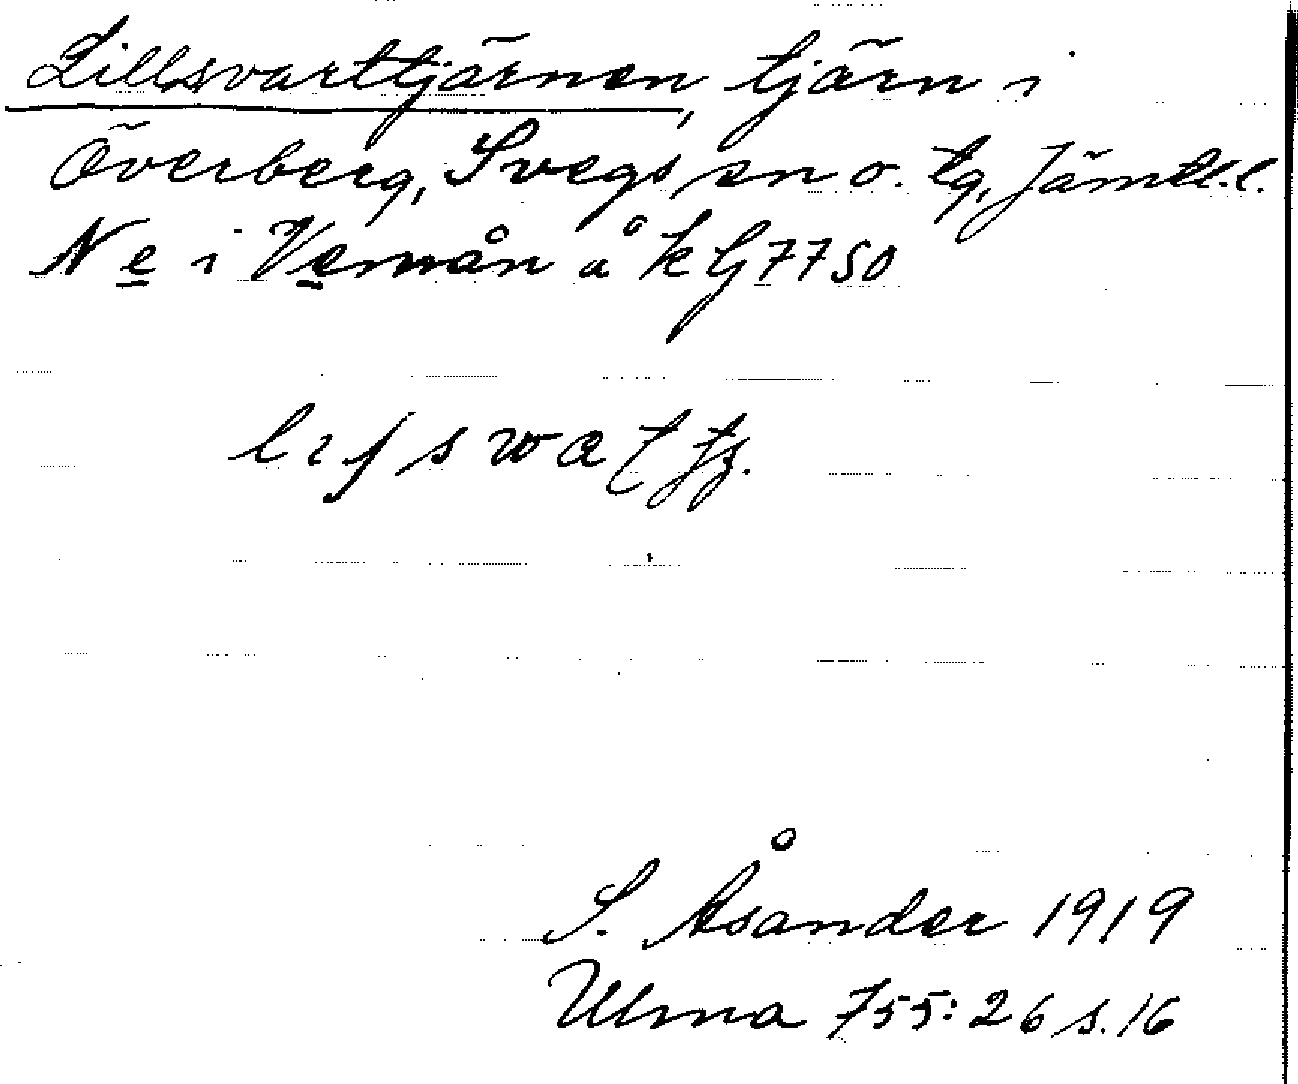 Lillsvarttjärnen, tjärn i
Överberg, Svegs sn o. tg, Jämtl. l.
N e i Vemån å k G 7750
S. Åsander 1919
Ulma 755: 26 s. 16